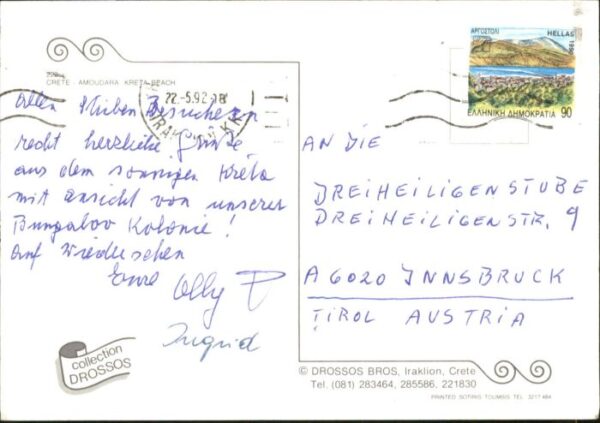 CRETE - AMOUDARA KRETA BEACH
Allen Stuben Besuchern
recht herzliche Grüsse
aus dem sonnigen Kreta
mit ansicht von unserer
Bungalov Kolonie!
Auf Wiedersehen
Eure Olly
Ingrid
22.-5.92.18
ΑΡΓΟΣΤΟΛΙ
HELLAS
ΕΛΛΗΝΙΚΗ ΔΗΜΟΚΡΑΤΙΑ 90
AN DIE
DREIHEILIGENSTUBE
DREIHEILIGENSTR. 9
A 6020 INNSBRUCK
TIROL AUSTRIA
collection
DROSSOS
© DROSSOS BROS, Iraklion, Crete
Tel. (081) 283464, 285586, 221830
PRINTED SOTIRIS TOUMBIS TEL. 3217 484